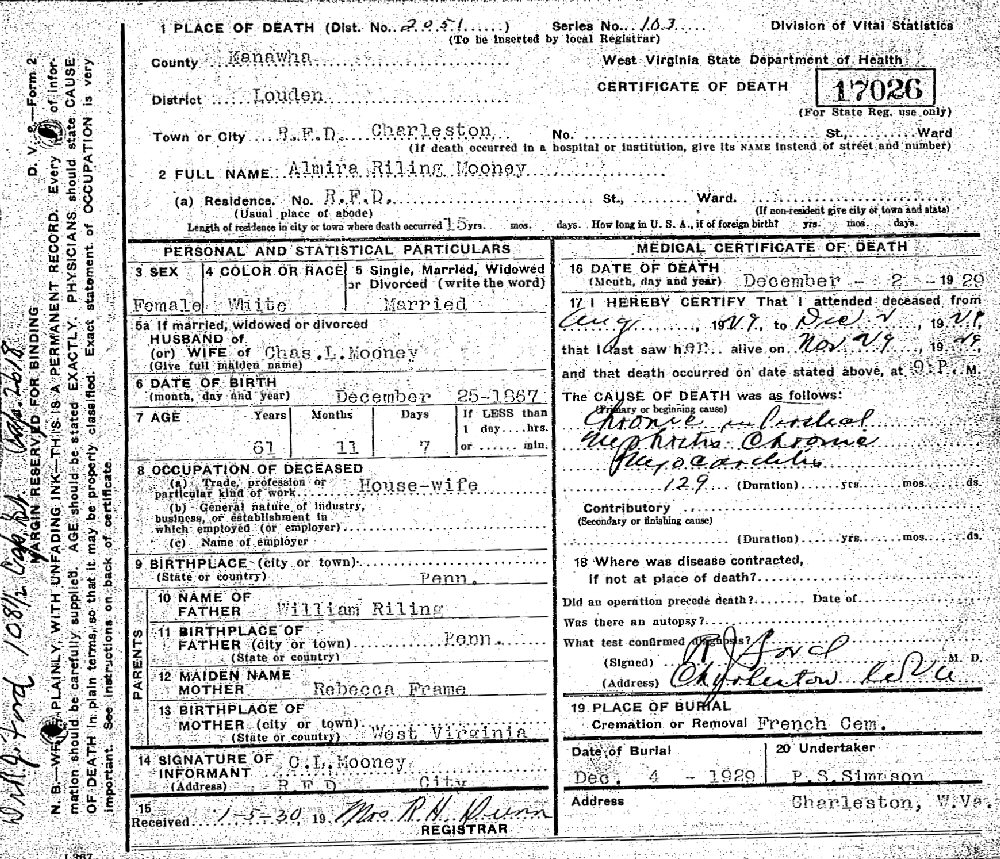 1 PLACE OF DEATH (Dist. No. 2051) Series No. 103 Division of Vital Statistics
(To be inserted by local Registrar)
County Kanawha West Virginia State Department of Health
District Louden CERTIFICATE OF DEATH 17026
(For State Reg. use only)
Town or City R.F.D. Charleston No. St., Ward
(If death occurred in a hospital or institution, give its NAME instead of street and number)
2 FULL NAME Almira Riling Mooney
(a) Residence. No. R.F.D. St., Ward.
(Usual place of abode) (If non-resident give city or town and state)
Length of residence in city or town where death occurred 15 yrs. mos. days. How long in U. S. A., if of foreign birth? yrs. mos. days.
PERSONAL AND STATISTICAL PARTICULARS
3 SEX 4 COLOR OR RACE 5 Single, Married, Widowed
or Divorced (write the word)
Female White Married
5a If married, widowed or divorced
HUSBAND of
(or) WIFE of Chas.L.Mooney
(Give full maiden name)
6 DATE OF BIRTH
(month, day and year) December 25-1867
7 AGE Years Months Days If LESS than
1 day....hrs.
61 11 7 or ...... min.
8 OCCUPATION OF DECEASED
(a) Trade, profession or
particular kind of work House-wife
(b) General nature of industry,
business, or establishment in
which employed (or employer)
(c) Name of employer
9 BIRTHPLACE (city or town)
(State or country) Penn.
PARENTS
10 NAME OF
FATHER William Riling
11 BIRTHPLACE OF
FATHER (city or town) Penn.
(State or country)
12 MAIDEN NAME
MOTHER Rebecca Frame
13 BIRTHPLACE OF
MOTHER (city or town)
(State or country) West Virginia
14 SIGNATURE OF
INFORMANT C.L.Mooney
(Address) R F D City
15
Received 1-5-30, 19 Mrs R.H. Dunn
REGISTRAR
MEDICAL CERTIFICATE OF DEATH
16 DATE OF DEATH
(Month, day and year) December - 2 - 1929
17 I HEREBY CERTIFY That I attended deceased from
Aug, 1929, to Dec 2, 1929,
that I last saw her alive on Nov 29, 1929,
and that death occurred on date stated above, at 9 P. M.
The CAUSE OF DEATH was as follows:
(Primary or beginning cause)
Chronic
Nephritis Chronic
Myocarditis
129 (Duration) yrs. mos. ds.
Contributory
(Secondary or finishing cause)
(Duration) yrs. mos. ds.
18 Where was disease contracted,
If not at place of death?
Did an operation precede death? Date of
Was there an autopsy?
What test confirmed diagnosis?
(Signed) Ford M. D.
(Address) Charleston W Va
19 PLACE OF BURIAL
Cremation or Removal French Cem.
Date of Burial 20 Undertaker
Dec. 4 - 1929 P.S.Simpson
Address Charleston, W.Va.
D. V. 8.—Form 2
MARGIN RESERVED FOR BINDING
N. B.—WRITE PLAINLY, WITH UNFADING INK—THIS IS A PERMANENT RECORD. Every item of infor-
mation should be carefully supplied. AGE should be stated EXACTLY. PHYSICIANS should state CAUSE
OF DEATH in plain terms, so that it may be properly classified. Exact statement of OCCUPATION is very
important. See instructions on back of certificate.
Ford 108½ Cap